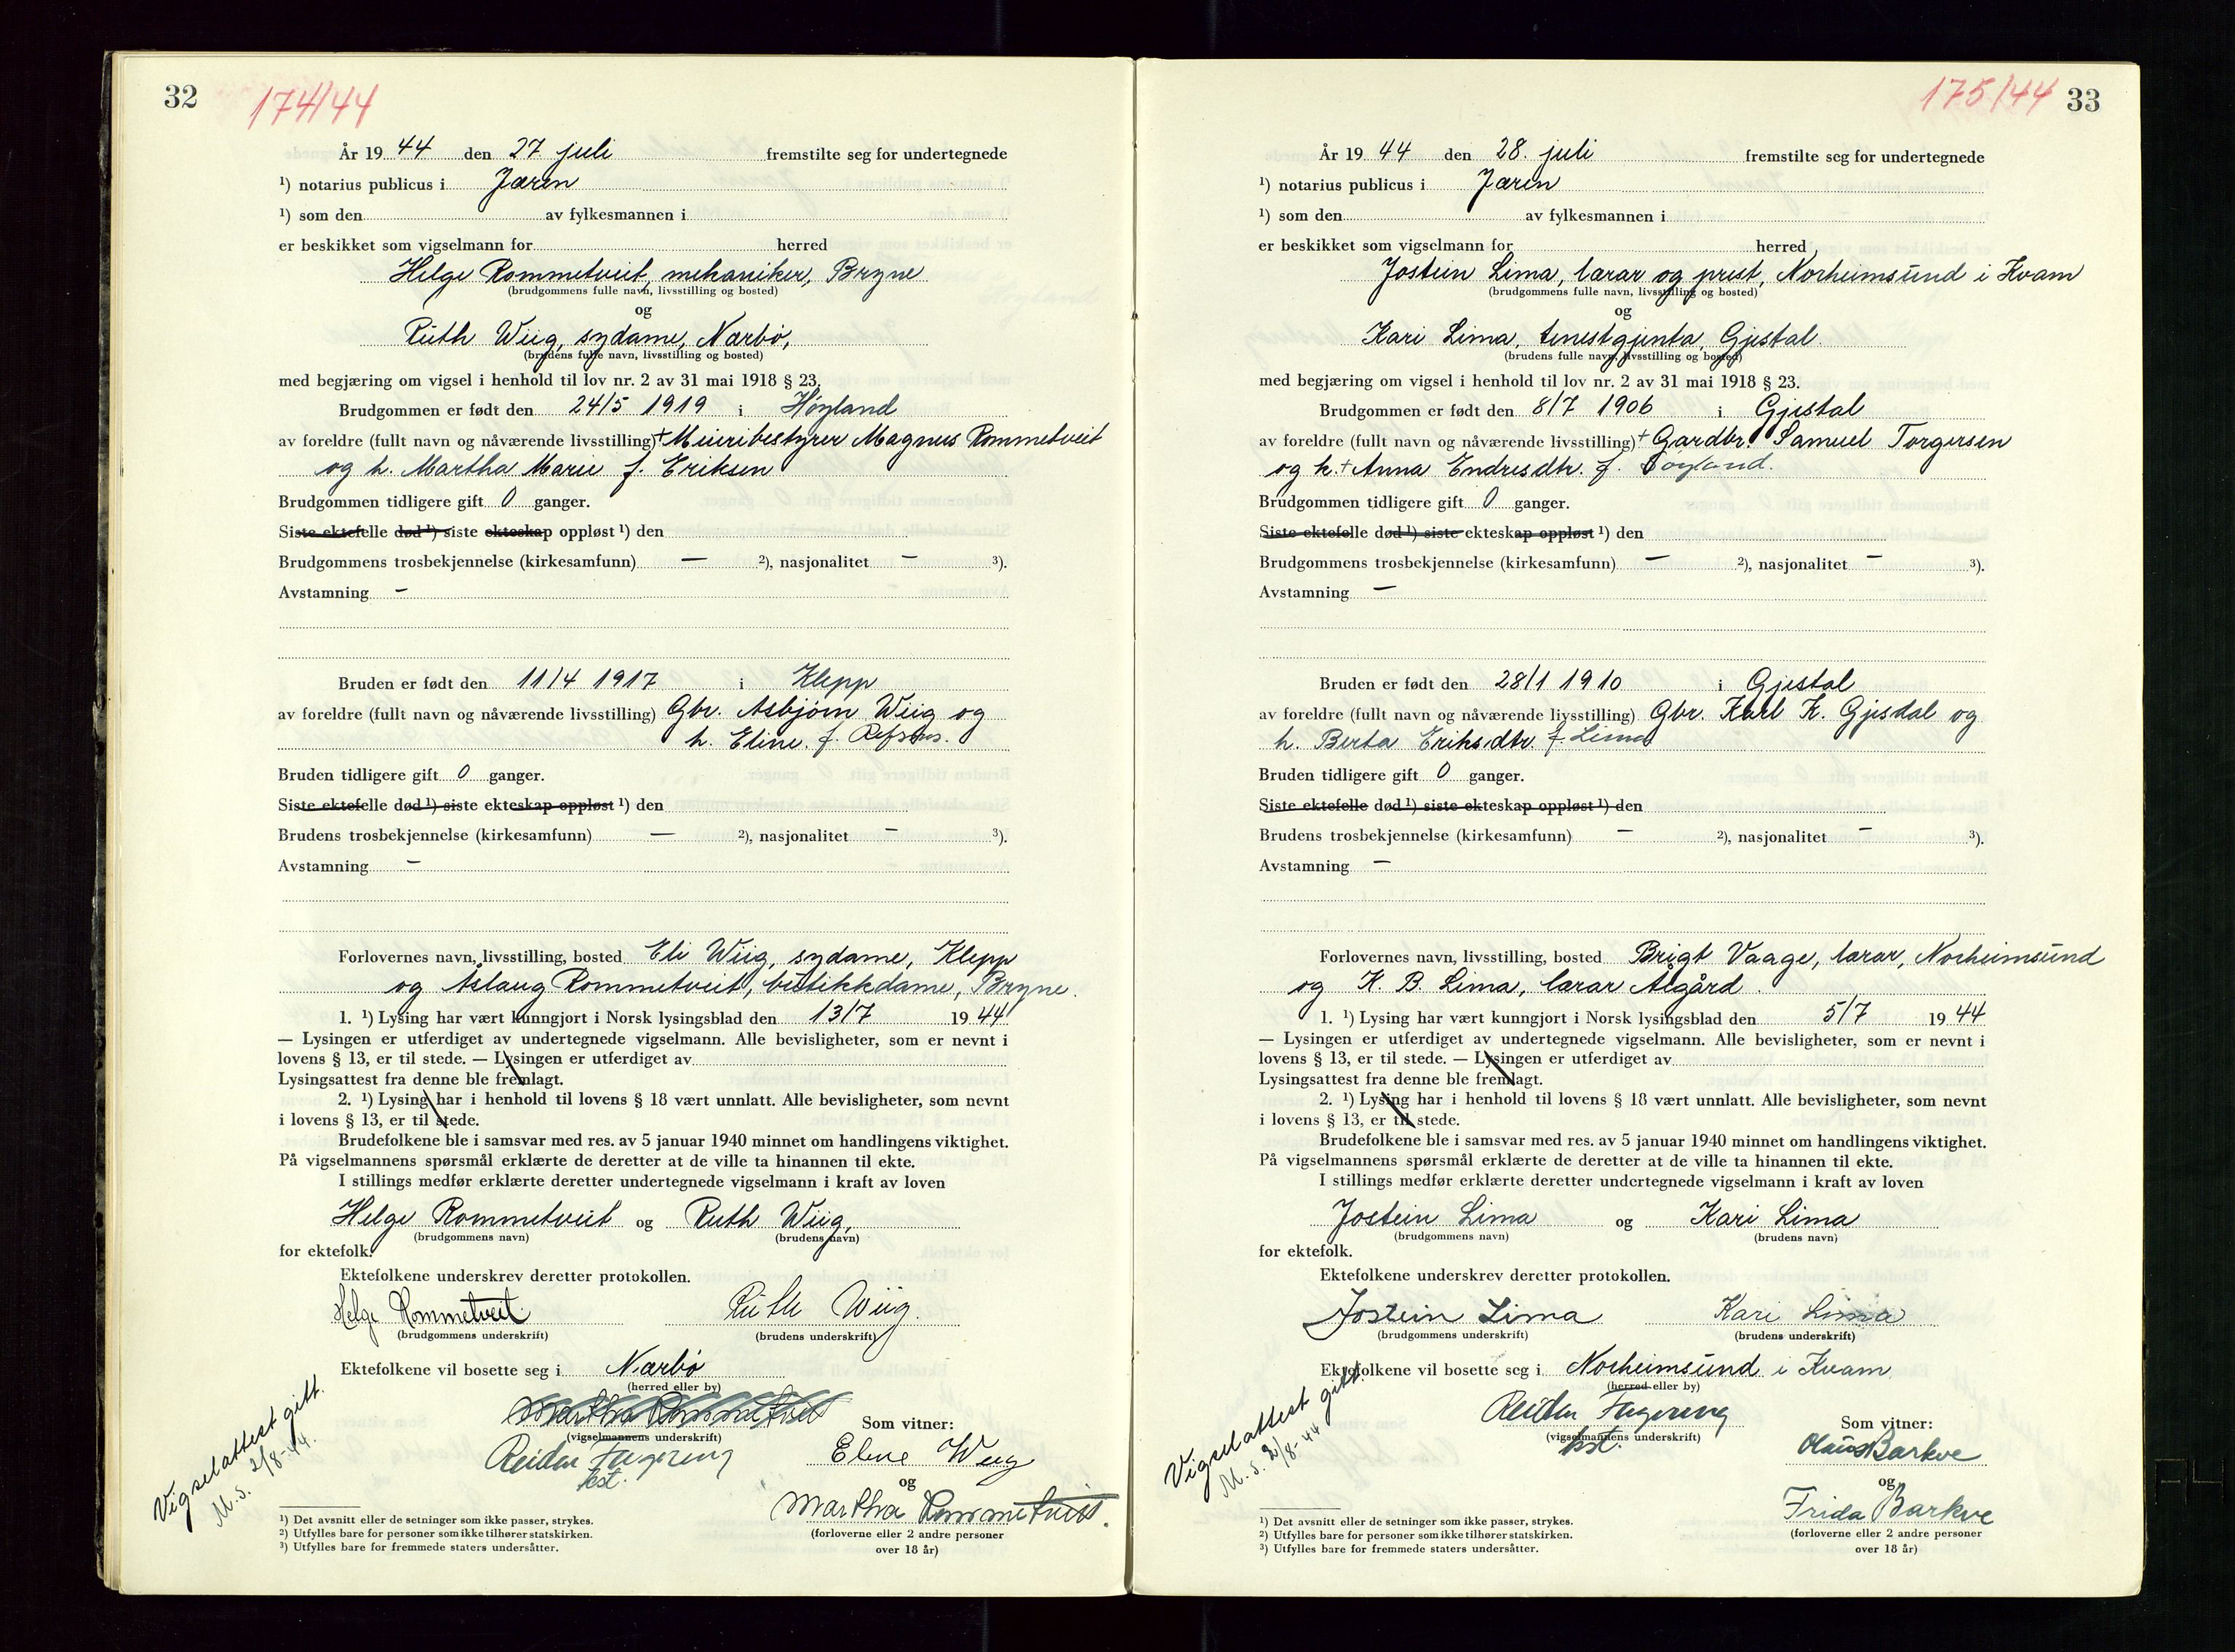 32
174/44
År 19 44 den 27. juli fremstilte seg for undertegnede
¹) notarius publicus i Jæren
¹) som den av fylkesmannen i
er beskikket som vigselmann for herred
Helge Rommetveit, mekaniker, Bryne
(brudgommens fulle navn, livsstilling og bosted)
og
Ruth Wiig, sydame, Nærbø,
(brudens fulle navn, livsstilling og bosted)
med begjæring om vigsel i henhold til lov nr. 2 av 31 mai 1918 § 23.
Brudgommen er født den 24/5 1919 i Høyland
av foreldre (fullt navn og nåværende livsstilling) + Meieribestyrer Magnus Rommetveit
og h. Martha Marie f. Eriksen
Brudgommen tidligere gift 0 ganger.
Siste ektefelle død ¹) siste ekteskap oppløst ¹) den
Brudgommens trosbekjennelse (kirkesamfunn) — ²), nasjonalitet — ³).
Avstamning —
Bruden er født den 11/4 1917 i Klepp
av foreldre (fullt navn og nåværende livsstilling) Gbr. Asbjørn Wiig og
h. Eline f. Refsnes.
Bruden tidligere gift 0 ganger.
Siste ektefelle død ¹) siste ekteskap oppløst ¹) den
Brudens trosbekjennelse (kirkesamfunn) — ²), nasjonalitet — ³).
Avstamning —
Forlovernes navn, livsstilling, bosted Eli Wiig, sydame, Klepp
og Aslaug Rommetveit, butikkdame, Bryne.
1. ¹) Lysing har vært kunngjort i Norsk lysingsblad den 13/7 19 44
— Lysingen er utferdiget av undertegnede vigselmann. Alle bevisligheter, som er nevnt i
lovens § 13, er til stede. — Lysingen er utferdiget av
Lysingsattest fra denne ble fremlagt.
2. ¹) Lysing har i henhold til lovens § 18 vært unnlatt. Alle bevisligheter, som nevnt
i lovens § 13, er til stede.
Brudefolkene ble i samsvar med res. av 5 januar 1940 minnet om handlingens viktighet.
På vigselmannens spørsmål erklærte de deretter at de ville ta hinannen til ekte.
I stillings medfør erklærte deretter undertegnede vigselmann i kraft av loven
Helge Rommetveit og Ruth Wiig,
(brudgommens navn) (brudens navn)
for ektefolk.
Ektefolkene underskrev deretter protokollen.
Helge Rommetveit. Ruth Wiig.
(brudgommens underskrift) (brudens underskrift)
Ektefolkene vil bosette seg i Nærbø
(herred eller by)
Martha Rommetveit
Som vitner:
(vigselmannens underskrift)
Reidar Fagereng
kst.
Eline Wiig
og
Martha Rommetveit.
(forloverne eller 2 andre personer
over 18 år)
Vigselattest gitt.
M.S. 2/8-44.
¹) Det avsnitt eller de setninger som ikke passer, strykes.
²) Utfylles bare for personer som ikke tilhører statskirken.
³) Utfylles bare for fremmede staters undersåtter.
175/44 33
År 19 44 den 28. juli fremstilte seg for undertegnede
¹) notarius publicus i Jæren
¹) som den av fylkesmannen i
er beskikket som vigselmann for herred
Jostein Lima, lærar og prest, Norheimsund i Kvam
(brudgommens fulle navn, livsstilling og bosted)
og
Kari Lima, tenestgjenta, Gjestal
(brudens fulle navn, livsstilling og bosted)
med begjæring om vigsel i henhold til lov nr. 2 av 31 mai 1918 § 23.
Brudgommen er født den 8/7 1906 i Gjestal
av foreldre (fullt navn og nåværende livsstilling) + Gardbr. Samuel Torgersen
og h. + Anna Endresdtr. f.
Brudgommen tidligere gift 0 ganger.
Siste ektefelle død ¹) siste ekteskap oppløst ¹) den
Brudgommens trosbekjennelse (kirkesamfunn) — ²), nasjonalitet — ³).
Avstamning —
Bruden er født den 28/1 1910 i Gjestal
av foreldre (fullt navn og nåværende livsstilling) Gbr. Karl K. Gjesdal og
h. Berta Eriksdtr. f. Lima
Bruden tidligere gift 0 ganger.
Siste ektefelle død ¹) siste ekteskap oppløst ¹) den
Brudens trosbekjennelse (kirkesamfunn) — ²), nasjonalitet — ³).
Avstamning —
Forlovernes navn, livsstilling, bosted Brigt Vaage, lærar, Norheimsund
og K. B. Lima, lærar Ålgård.
1. ¹) Lysing har vært kunngjort i Norsk lysingsblad den 5/7 19 44
— Lysingen er utferdiget av undertegnede vigselmann. Alle bevisligheter, som er nevnt i
lovens § 13, er til stede. — Lysingen er utferdiget av
Lysingsattest fra denne ble fremlagt.
2. ¹) Lysing har i henhold til lovens § 18 vært unnlatt. Alle bevisligheter, som nevnt
i lovens § 13, er til stede.
Brudefolkene ble i samsvar med res. av 5 januar 1940 minnet om handlingens viktighet.
På vigselmannens spørsmål erklærte de deretter at de ville ta hinannen til ekte.
I stillings medfør erklærte deretter undertegnede vigselmann i kraft av loven
Jostein Lima og Kari Lima
(brudgommens navn) (brudens navn)
for ektefolk.
Ektefolkene underskrev deretter protokollen.
Jostein Lima Kari Lima
(brudgommens underskrift) (brudens underskrift)
Ektefolkene vil bosette seg i Norheimsund i Kvam
(herred eller by)
Reidar Fagereng
Som vitner:
(vigselmannens underskrift)
kst.
Olaus Barkve
og
Frida Barkve
(forloverne eller 2 andre personer
over 18 år)
Vigselattest gitt.
M.S. 2/8-44
¹) Det avsnitt eller de setninger som ikke passer, strykes.
²) Utfylles bare for personer som ikke tilhører statskirken.
³) Utfylles bare for fremmede staters undersåtter.